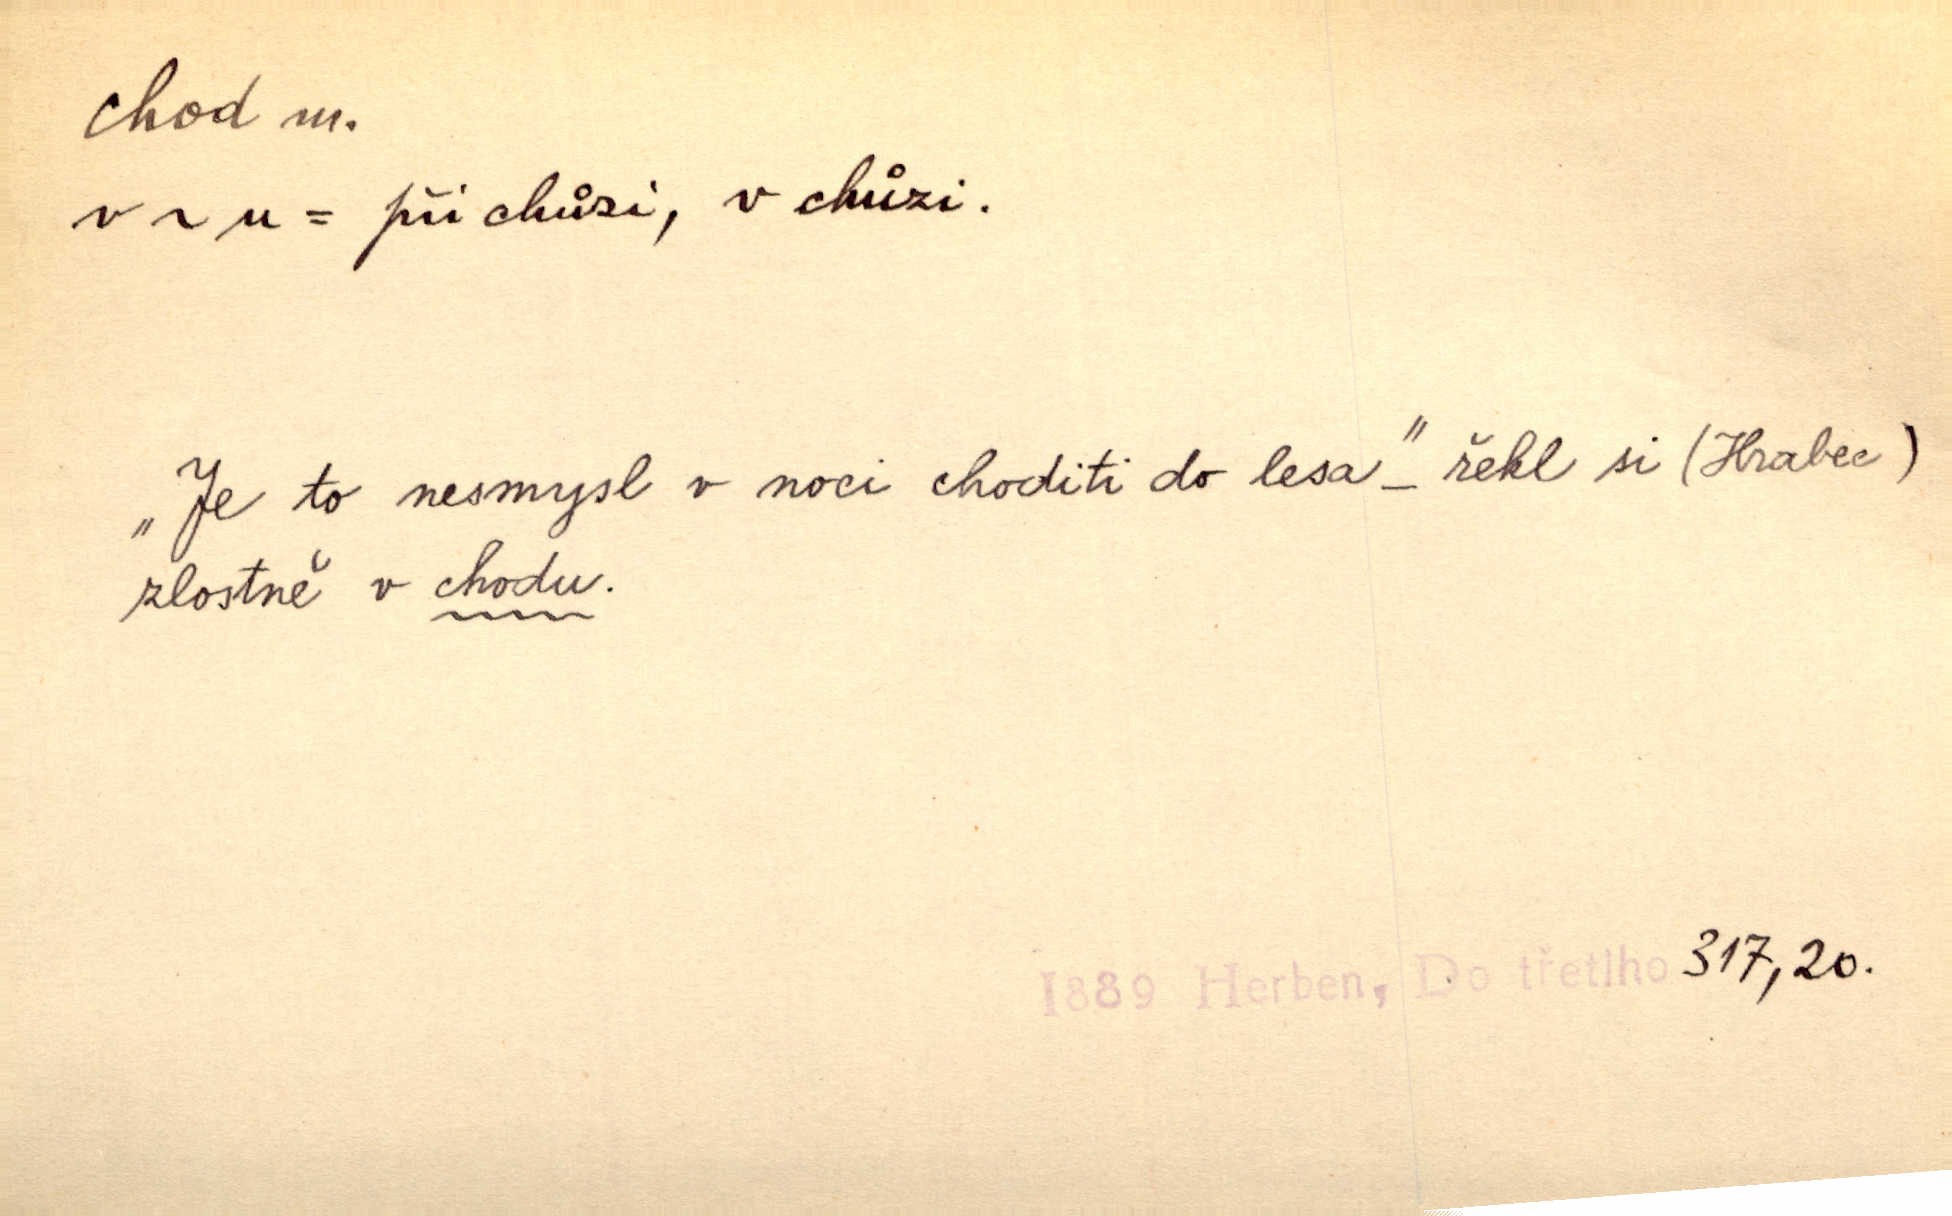 chod m.
v ~ u = při chůzi, v chůzi.
„Je to nesmysl v noci choditi do lesa –“ řekl si (Hrabec)
zlostně v chodu.
1889 Herben, Do třetího 317,20.